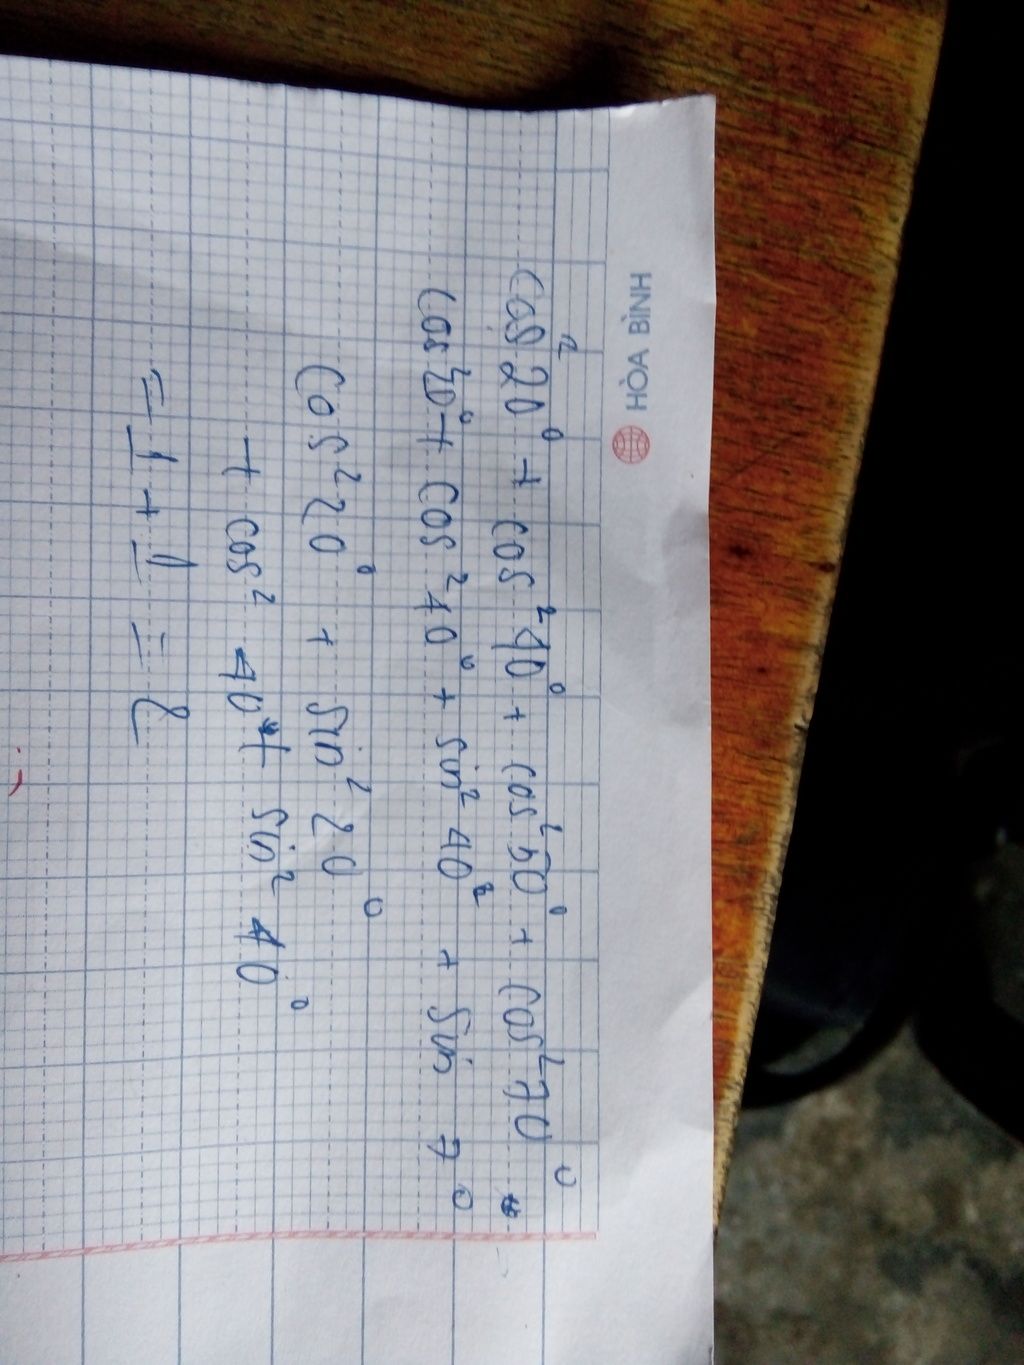 HÒA BÌNH
cos²20° + cos²40° + cos²50° + cos²70°
cos²20° + cos²40° + sin²40² + sin 7°
cos²20° + sin²20°
+ cos² 40° + sin² 40°
= 1 + 1 = 2